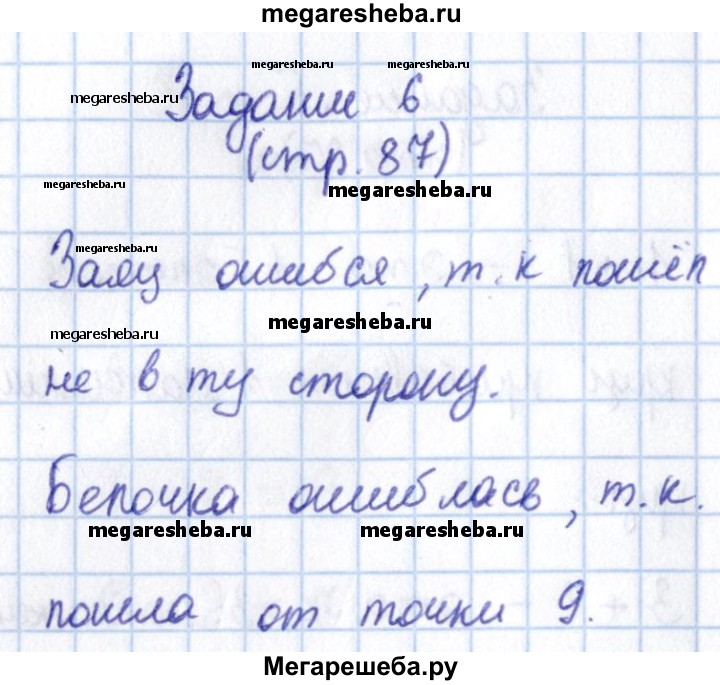 megaresheba.ru
megaresheba.ru megaresheba.ru
megaresheba.ru
Задание 6
(стр. 87)
megaresheba.ru
megaresheba.ru
megaresheba.ru
Заяц ошибся, т.к пошёл
megaresheba.ru
megaresheba.ru
не в ту сторону.
Белочка ошиблась, т.к.
megaresheba.ru megaresheba.ru
пошла от точки 9.
Мегарешеба.ру